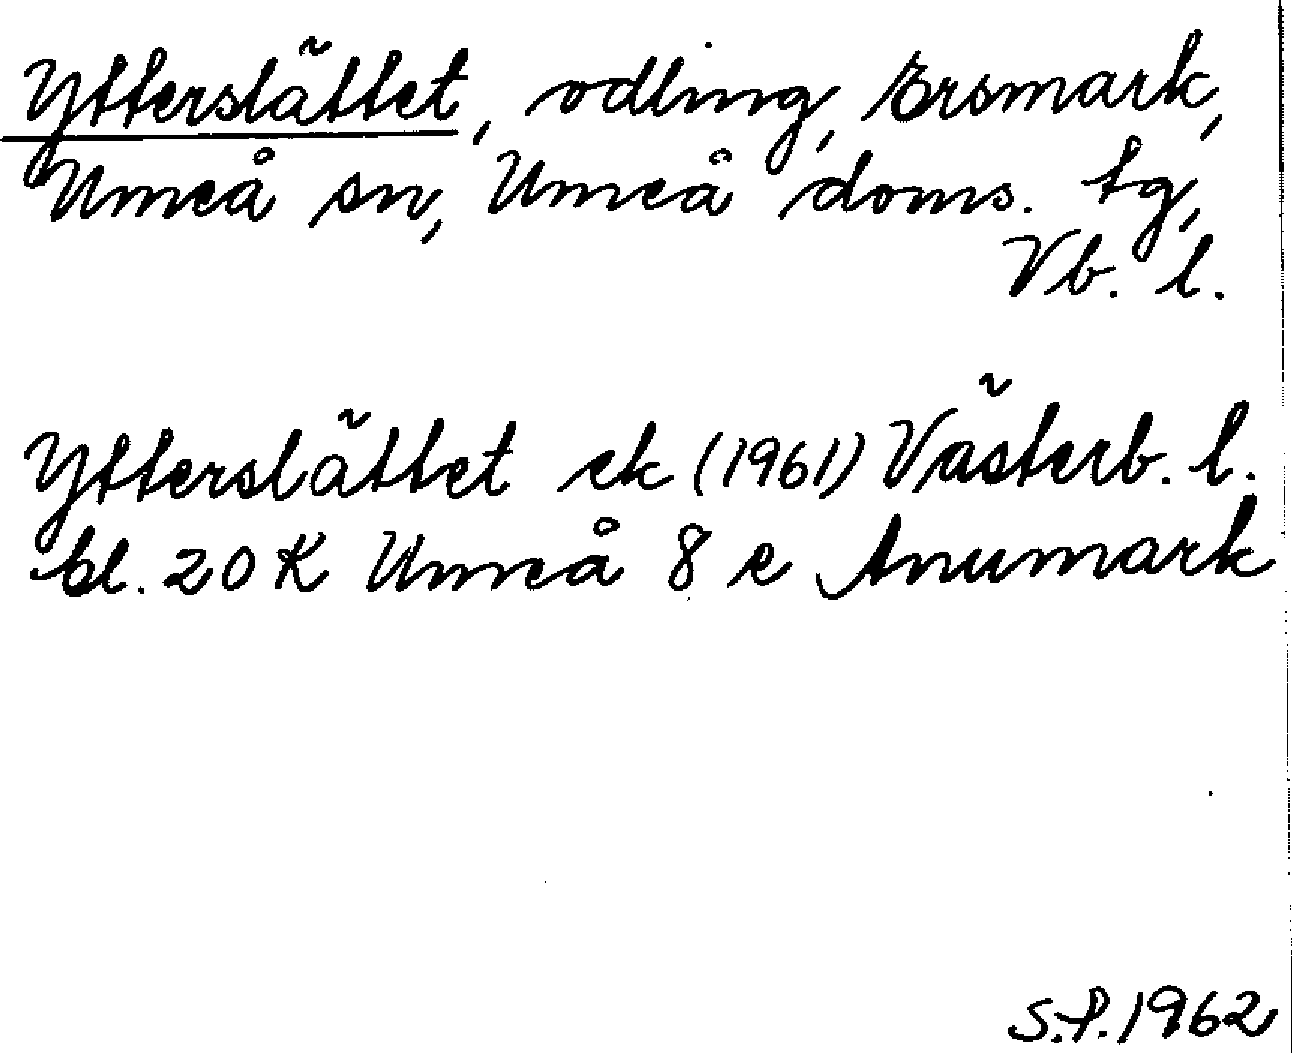 Ytterslättet, odling, Ersmark,
Umeå sn, Umeå doms. tg,
Vb. l.
Ytterslättet ek (1961) Västerb. l.
bl. 20 K Umeå 8 e Anumark
S.P. 1962